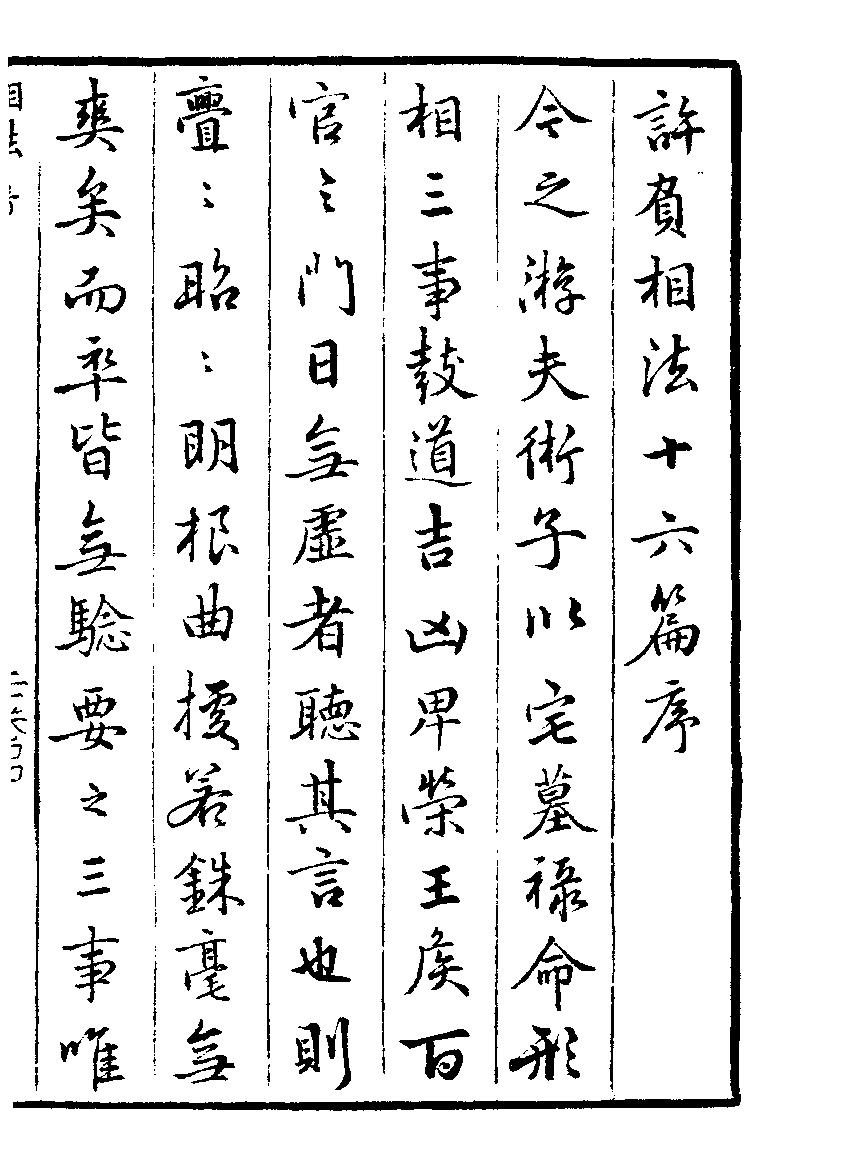 許負相法十六篇序
今之游夫術子以宅墓祿命形
相三事鼓道吉凶卑榮王侯百
官之門日無虛者聽其言也則
亹〻昭〻明根曲㨿若銖毫無
爽矣而率皆無騐要之三事唯